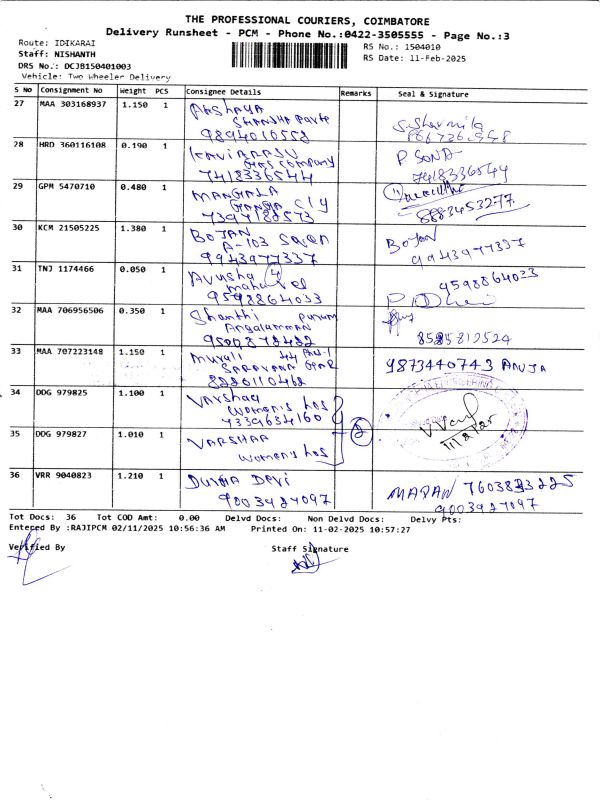 THE PROFESSIONAL COURIERS, COIMBATORE
Delivery Runsheet - PCM - Phone No.:0422-3505555 - Page No.:3
Route: IDIKARAI
Staff: NISHANTH
DRS No.: DCJB150401003
Vehicle: Two Wheeler Delivery
RS No.: 1504010
RS Date: 11-Feb-2025
S No Consignment No Weight PCS Consignee Details Remarks Seal & Signature
27 MAA 303168937 1.150 1 AKSHAYA
9894010558
28 HRD 360116108 0.190 1 KAVIARASU P SONA
GAS COMPANY
7418336544 7418336544
29 GPM 5470710 0.480 1 MANGALA
GANGA City
7397188573 8883453277
30 KCM 21505225 1.380 1 BOJAN BOJAN
A-103
9943977337 9943977337
31 TNJ 1174466 0.050 1 Ayusha
9598864033 9598864033
32 MAA 706956506 0.350 1 Shanthi Puram
Angalamman
9500878482 8525812524
33 MAA 707223148 1.150 1 Murali
SARAVANA
8220110468 9873440743 ANUJA
34 DDG 979825 1.100 1 Varshaa
Women's hos
7339634160
35 DDG 979827 1.010 1 VARSHAA
Women's hos
2
36 VRR 9040823 1.210 1 DURGA DEVI
9003927097 9003927097
Tot Docs: 36 Tot COD Amt: 0.00 Delvd Docs: Non Delvd Docs: Delvy Pts:
Entered By :RAJIPCM 02/11/2025 10:56:36 AM Printed On: 11-02-2025 10:57:27
Verified By Staff Signature